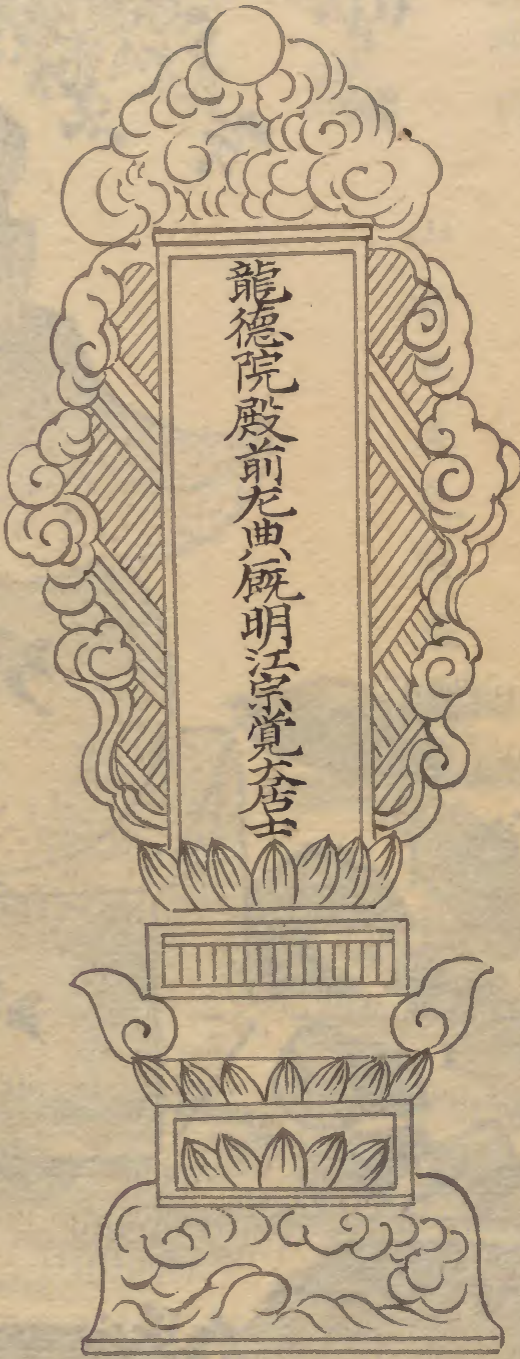 龍德院殿前左典厩明江宗覚大居士